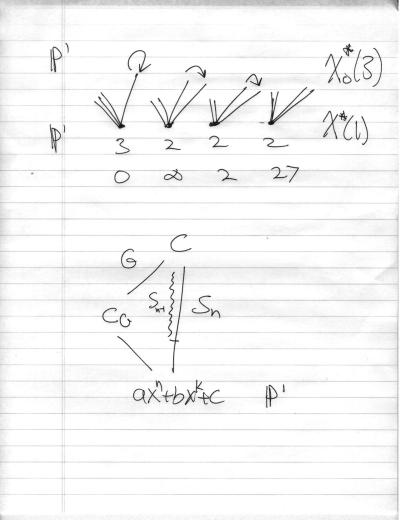 ℙ¹ X₀*(3)
ℙ¹ X*(1)
3 2 2 2
0 ∞ 2 27
C
G
C_G S_{n-1} S_n
ax^n+bx^k+c ℙ¹